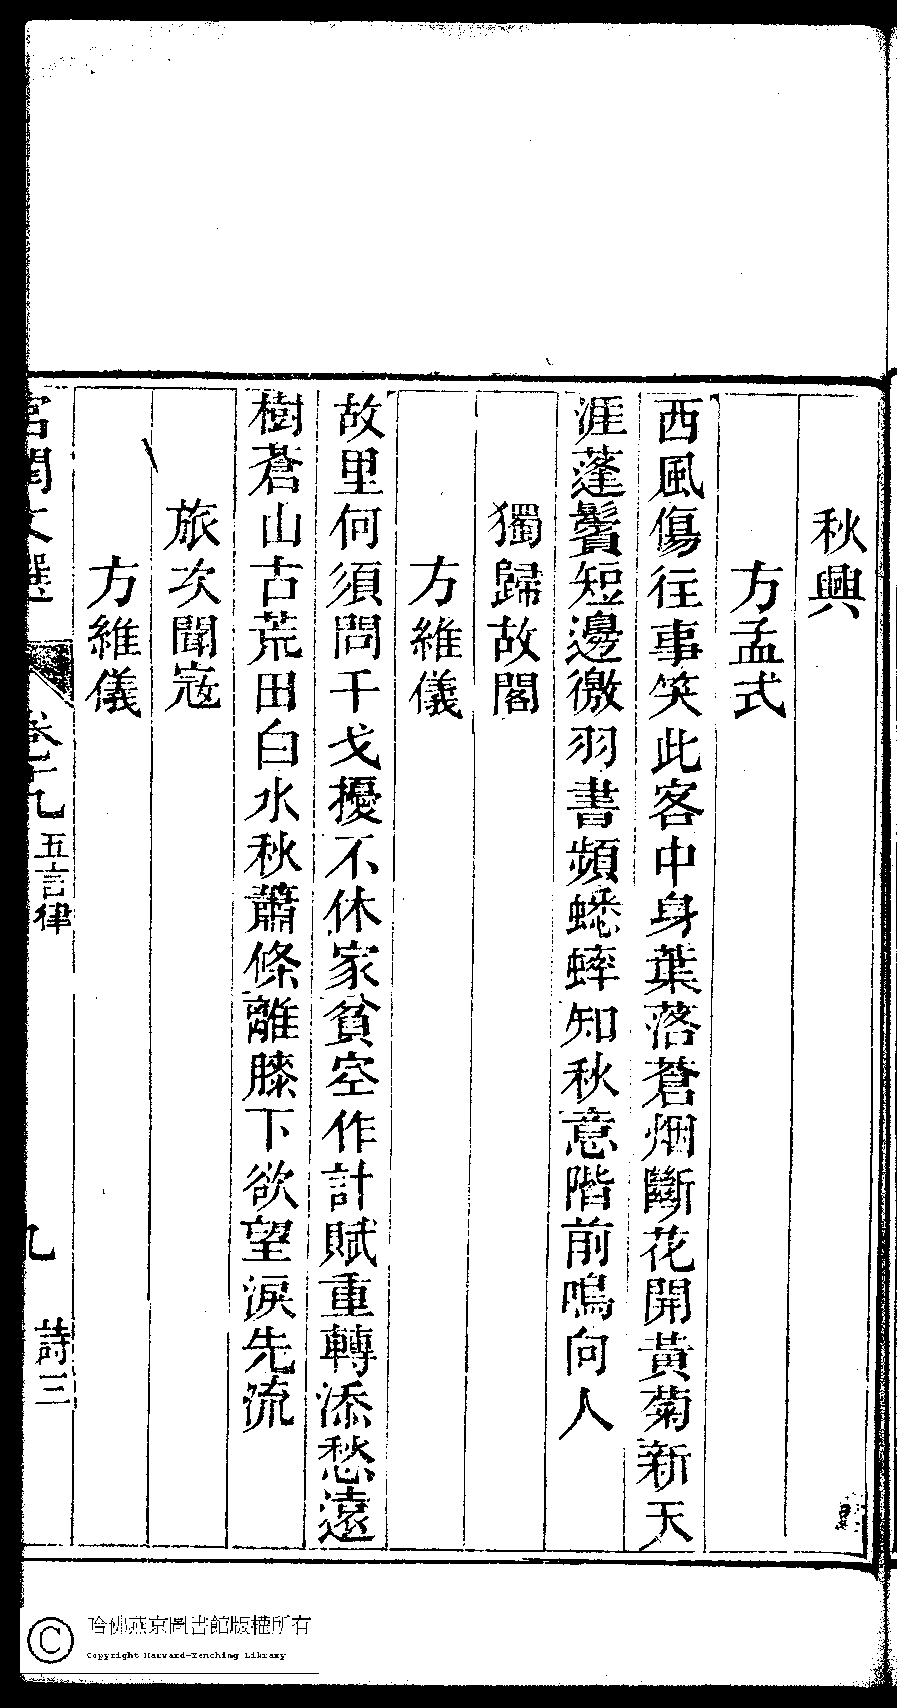 秋興
方孟式
西風傷往事笑此客中身葉落蒼烟斷花開黃菊新天
涯蓬鬢短邊徼羽書頻蟋蟀知秋意階前鳴向人
獨歸故閣
方維儀
故里何須問干戈擾不休家貧空作計賦重轉添愁遠
樹蒼山古荒田白水秋蕭條離膝下欲望淚先流
旅次聞寇
方維儀
宮閨文選 卷十九 五言律 九 詩三
哈佛燕京圖書館版權所有
Copyright Harvard-Yenching Library